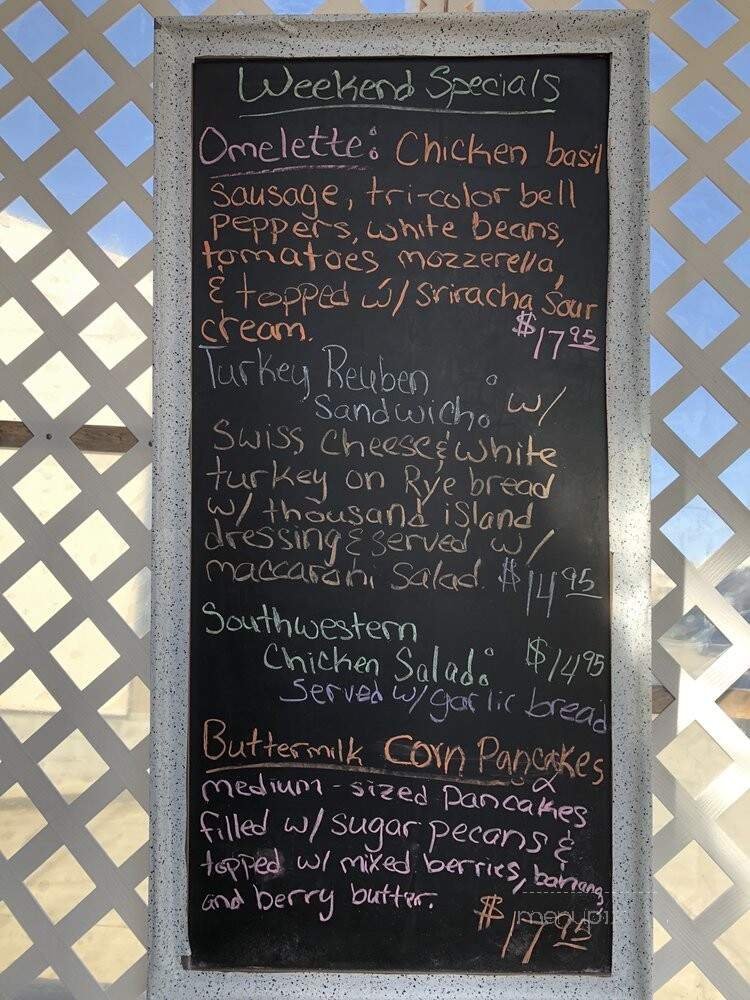 Weekend Specials
Omelette: Chicken basil
sausage, tri-color bell
peppers, white beans,
tomatoes mozzerella,
& topped w/ Sriracha Sour
cream. $17.95
Turkey Reuben
Sandwich: w/
Swiss Cheese & white
turkey on Rye bread
w/ thousand island
dressing & served w/
maccaroni Salad. $14.95
Southwestern
Chicken Salad: $14.95
Served w/ garlic bread
Buttermilk Corn Pancakes
2
medium-sized Pancakes
filled w/ sugar pecans &
topped w/ mixed berries, banana
and berry butter.
menupix
$17.95